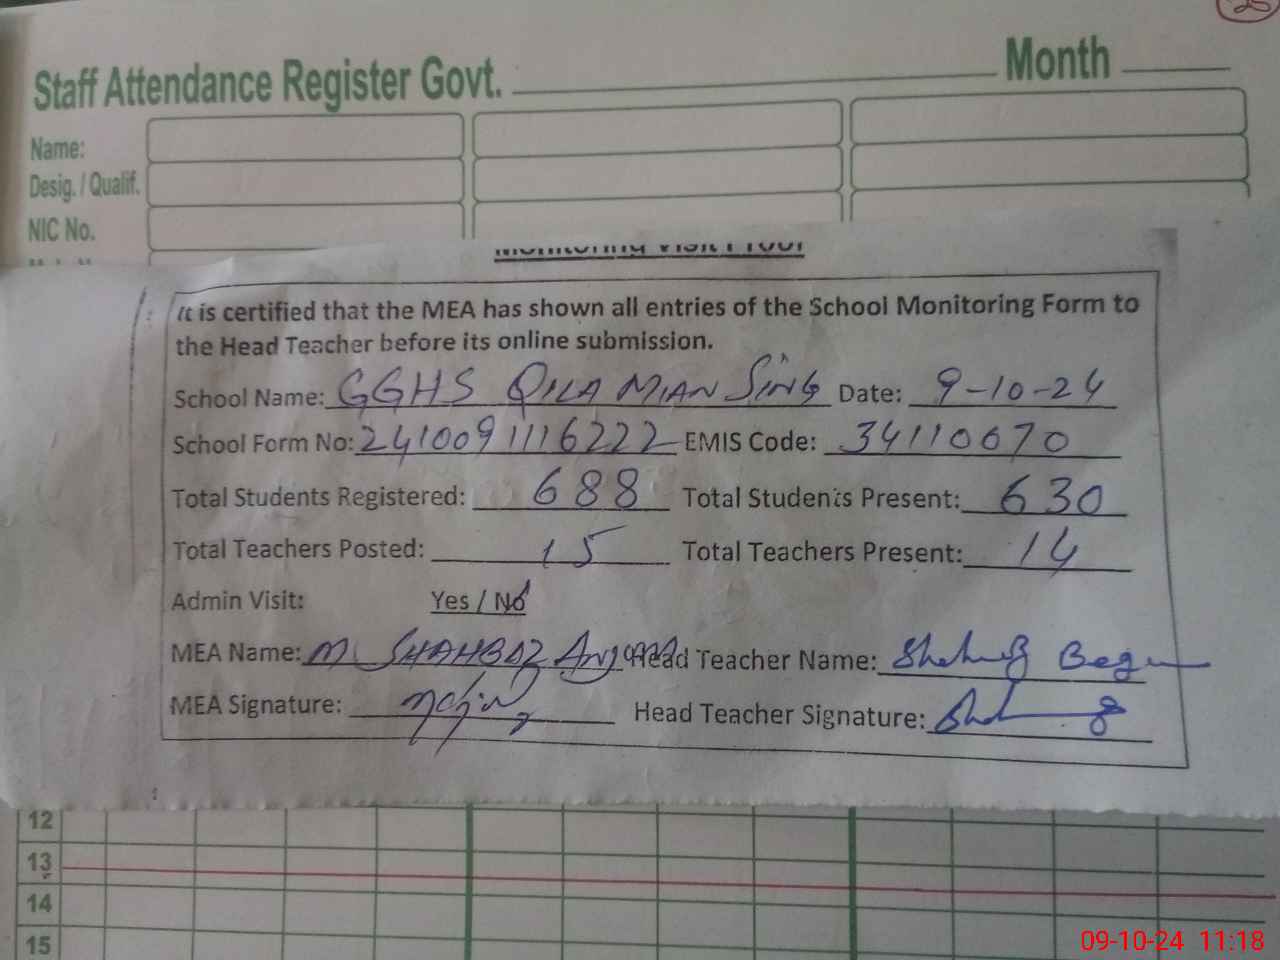 25
Staff Attendance Register Govt. Month
Name:
Desig. / Qualif.
NIC No.
Monitoring Visit Proof
It is certified that the MEA has shown all entries of the School Monitoring Form to
the Head Teacher before its online submission.
School Name: GGHS QILA MIAN SING Date: 9-10-24
School Form No: 2410091116222 EMIS Code: 34110670
Total Students Registered: 688 Total Students Present: 630
Total Teachers Posted: 15 Total Teachers Present: 14
Admin Visit: Yes / No
MEA Name: M SHAHBAZ Head Teacher Name: Begum
MEA Signature: Head Teacher Signature:
12
13
14
15
09-10-24 11:18